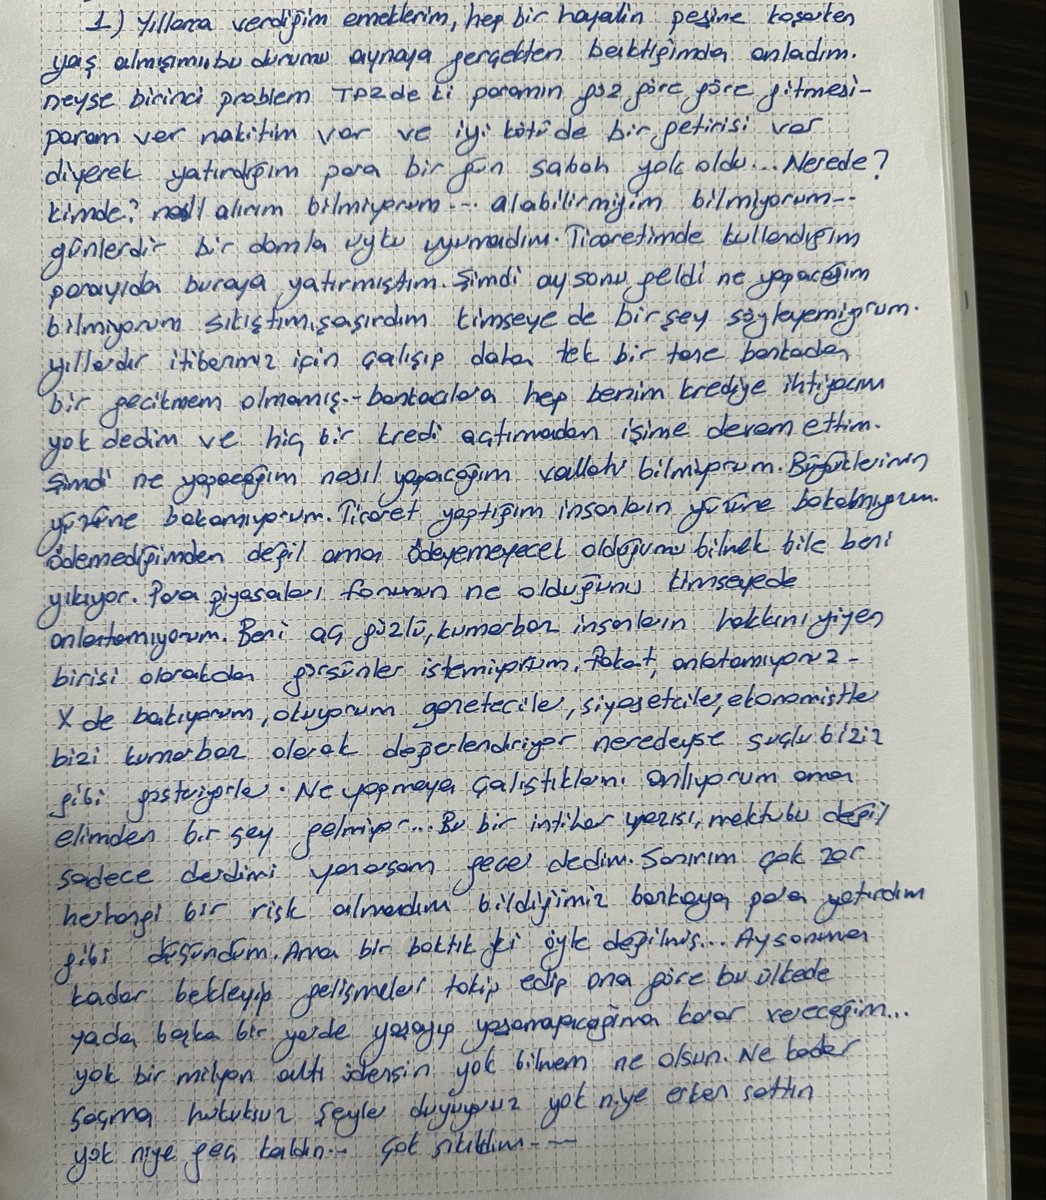 1) Yıllarca verdiğim emeklerim, hep bir hayalin peşine koşarken
yaş almışım, bu durumu aynaya gerçekten baktığımda anladım.
neyse birinci problem TP2 de ki paramın göz göre göre gitmesi-
param var nakitim var ve iyi kötü de bir getirisi var
diyerek yatırdığım para bir gün sabah yok oldu... Nerede?
kimde? nasıl alırım bilmiyorum... alabilirmiyim bilmiyorum...
günlerdir bir damla uyku uyumadım. Ticaretimde kullandığım
parayıda buraya yatırmıştım. Şimdi ay sonu geldi ne yapacağım
bilmiyorum sıkıştım, şaşırdım kimseye de birşey söyleyemiyorum.
yıllardır itibarımız için çalışıp daha tek bir tane bankadan
bir gecikmem olmamış... bankacılara hep benim krediye ihtiyacım
yok dedim ve hiç bir kredi açtırmadan işime devam ettim.
Şimdi ne yapacağım nasıl yapacağım vallahi bilmiyorum. Büyüklerimin
yüzüne bakamıyorum. Ticaret yaptığım insanların yüzüne bakamıyorum.
Ödemediğimden değil ama ödeyemeyecek olduğumu bilmek bile beni
yıkıyor. Para piyasaları fonunun ne olduğunu kimseyede
anlatamıyorum. Beni aç gözlü, kumarbaz insanların hakkını yiyen
birisi olarakdan görsünler istemiyorum. Fakat, anlatamıyoruz-
X de bakıyorum, okuyorum gazeteciler, siyasetciler, ekonomistler
bizi kumarbaz olarak değerlendiriyor neredeyse suçlu biziz
gibi gösteriyorlar. Ne yapmaya çalıştıklarını anlıyorum ama
elimden bir şey gelmiyor... Bu bir intihar yazısı, mektubu değil
sadece derdimi yanarsam geçer dedim. Sanırım çok zor
herhangi bir risk almadım bildiğimiz bankaya para yatırdım
gibi düşündüm. Ama bir baktık ki öyle değilmiş... Ay sonuna
kadar bekleyip gelişmeleri takip edip ona göre bu ülkede
yada başka bir yerde yaşayıp yaşamayacağıma karar vereceğim...
yok bir milyon altı ödensin yok bilmem ne olsun. Ne kadar
saçma hukuksuz şeyler duyuyoruz yok niye erken sattın
yok niye geç kaldın... Çok sıkıldım---